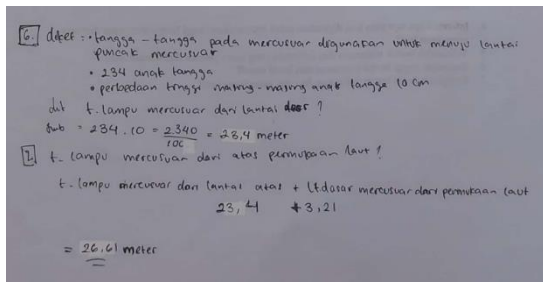 6. diket : • tangga - tangga pada mercusuar digunakan untuk menuju lantai
puncak mercusuar
• 234 anak tangga
• perbedaan tinggi masing-masing anak tangga 10 cm
dit t. lampu mercusuar dari lantai dasar ?
Jwb = 234 . 10 = 2340/100 = 23,4 meter
7. t. lampu mercusuar dari atas permukaan laut ?
t. lampu mercusuar dari lantai atas + lt dasar mercusuar dari permukaan laut
23,4 + 3,21
= 26,61 meter